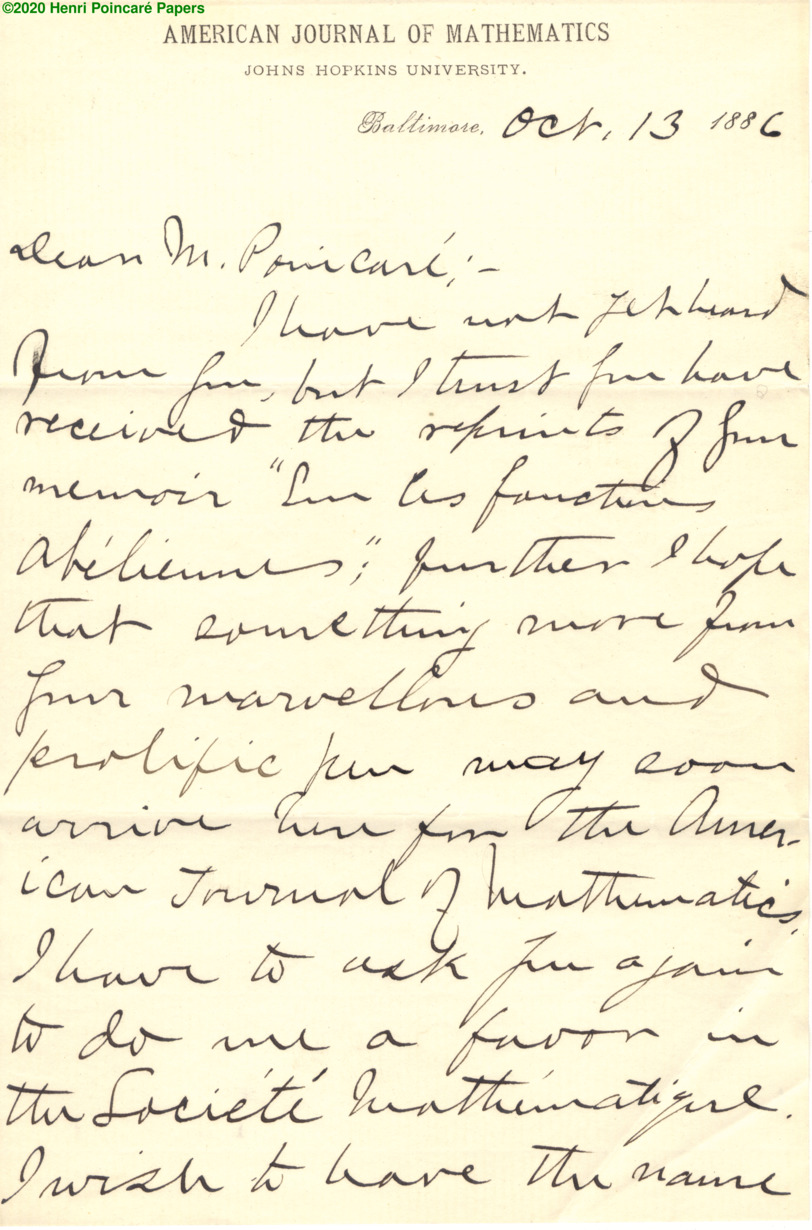 ©2020 Henri Poincaré Papers
AMERICAN JOURNAL OF MATHEMATICS
JOHNS HOPKINS UNIVERSITY.
Baltimore, Oct. 13 1886
Dear M. Poincaré;-
I have not yet heard
from you, but I trust you have
received the reprints of your
memoir "Sur les fonctions
Abéliennes"; further I hope
that something more from
your marvellous and
prolific pen may soon
arrive here for the Amer-
ican Journal of Mathematics.
I have to ask you again
to do me a favor in
the Société Mathématique.
I wish to have the name